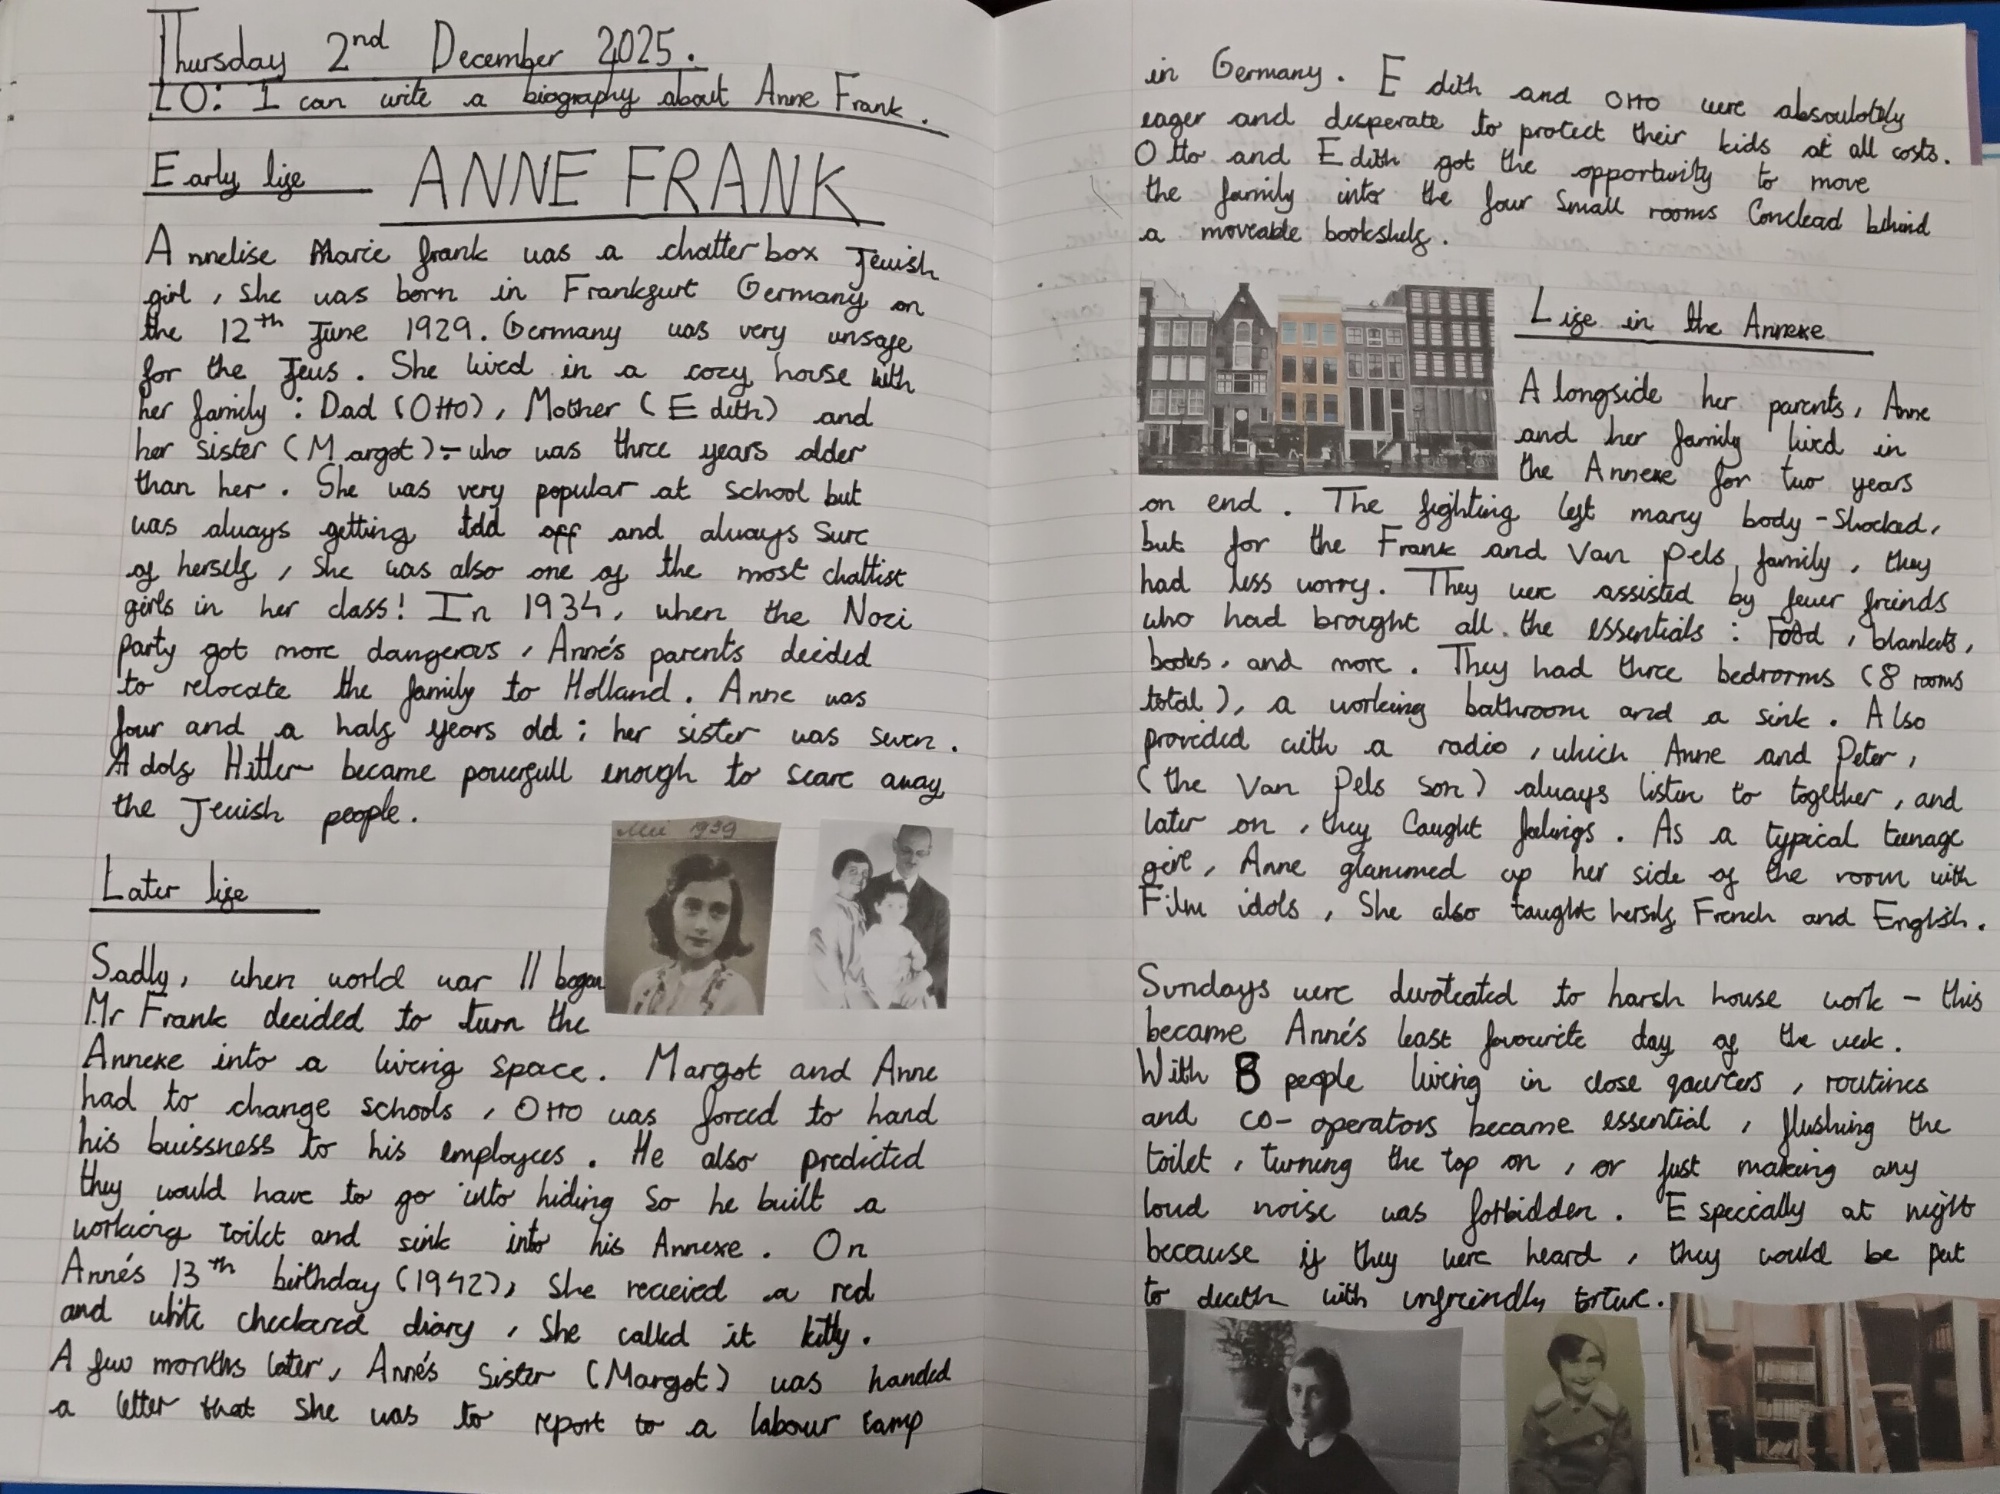 Thursday 2nd December 2025.
LO: I can write a biography about Anne Frank.
ANNE FRANK
Early life
Annelise Marie frank was a chatter box Jewish
girl, She was born in Frankfurt Germany on
the 12th June 1929. Germany was very unsafe
for the Jews. She lived in a cozy house with
her family: Dad (Otto), Mother (Edith) and
her sister (Margot):- who was three years older
than her. She was very popular at school but
was always getting told off and always Sure
of herself, She was also one of the most chattist
girls in her class! In 1934, when the Nazi
party got more dangerous, Anne's parents decided
to relocate the family to Holland. Anne was
four and a half years old; her sister was seven.
Adolf Hitler became powerfull enough to scare away
the Jewish people.
Later life
Mei 1939
Sadly, when world war II began
Mr Frank decided to turn the
Annexe into a living space. Margot and Anne
had to change schools, Otto was forced to hand
his buissness to his employees. He also predicted
they would have to go into hiding so he built a
working toilet and sink into his Annexe. On
Anne's 13th birthday (1942), She recieved a red
and white checkared diary, She called it kitty.
A few months later, Anne's Sister (Margot) was handed
a letter that she was to report to a labour camp
in Germany. Edith and Otto were absoulotely
eager and desperate to protect their kids at all costs.
Otto and Edith got the opportunity to move
the family into the four Small rooms Conclead behind
a moveable bookshelf.
Life in the Annexe
Alongside her parents, Anne
and her family lived in
the Annexe for two years
on end. The fighting left many body-Shocked,
but for the Frank and Van Pels family, they
had less worry. They were assisted by fewer freinds
who had brought all the essentials: Food, blankets,
books, and more. They had three bedrooms (8 rooms
total), a working bathroom and a sink. Also
provided with a radio, which Anne and Peter,
(the Van Pels son) always listen to together, and
later on, they Caught feelings. As a typical teenage
girl, Anne glammed up her side of the room with
Film idols, She also taught herself French and English.
Sundays were devoteated to harsh house work - this
became Anne's least favourite day of the week.
With 8 people living in close qaurters, routines
and co-operators became essential, flushing the
toilet, turning the tap on, or just making any
loud noise was forbidden. Especcially at night
because if they were heard, they would be put
to death with unfreindly tortue.